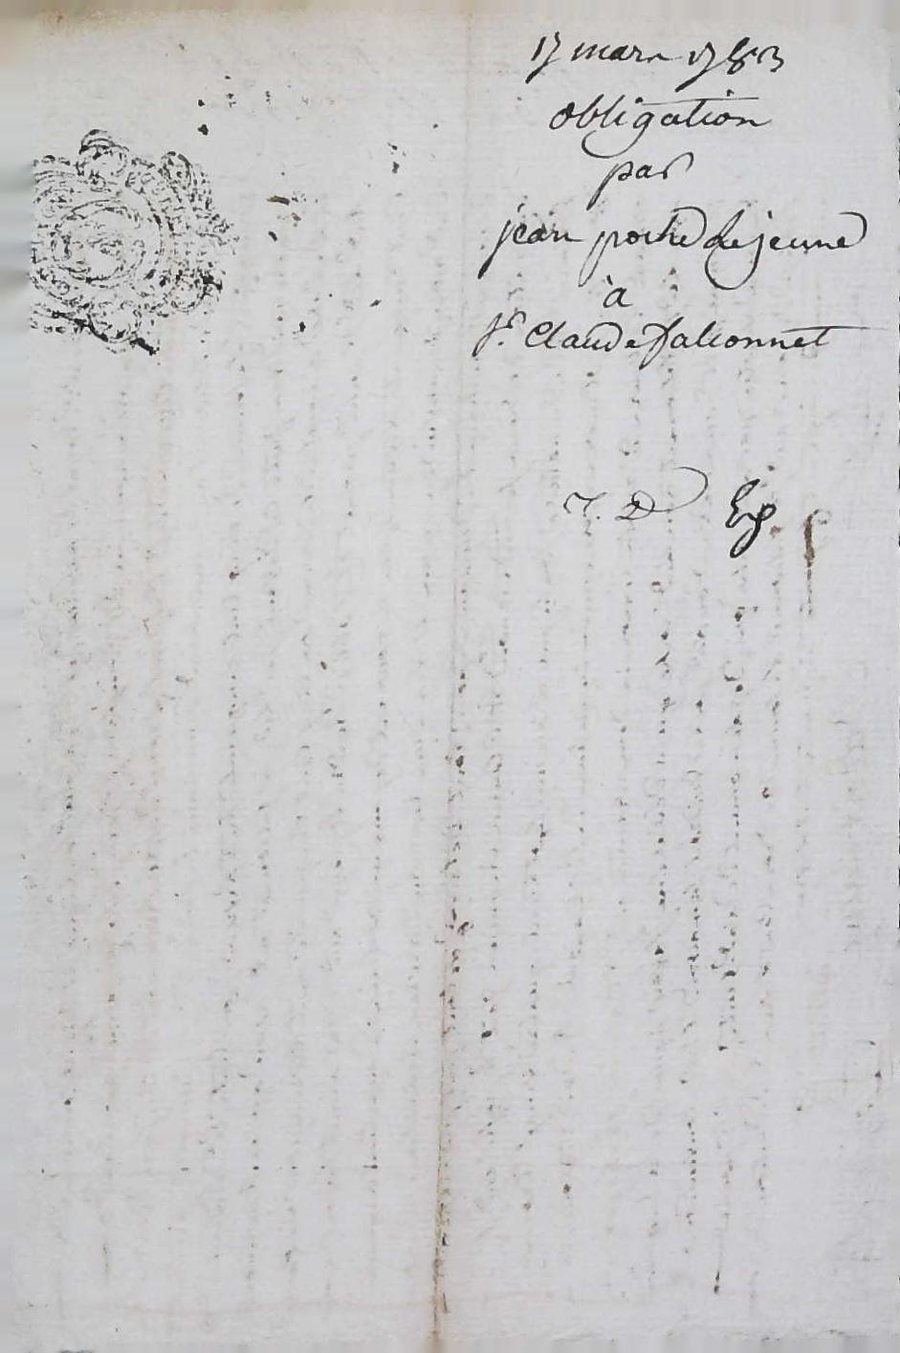 17 mars 1783
obligation
par
jean poche le jeune
à
sr. Claude falconnet